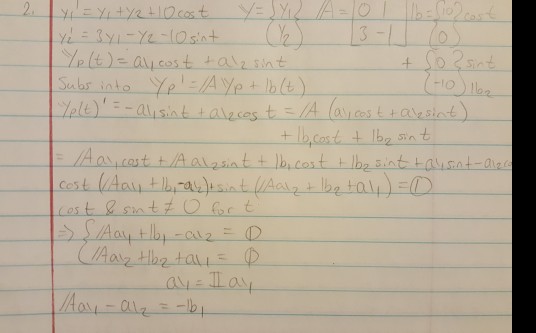 2. y₁' = y₁ + y₂ + 10cost    Y = {y₁    /A = [0 1    lb = {10}cost
y₂' = 3y₁ - y₂ - 10sint    (y₂)    3 -1]    (0)
Yp(t) = a₁cost + a₂ sint    + {0 } sint
Subs into Yp' = /AYp + lb(t)    (-10) lb₂
Yp(t)' = -a₁sint + a₂cos t = /A (a₁cost + a₂sint)
+ lb₁cost + lb₂ sint
= /Aa₁cost + /Aa₂sint + lb₁cost + lb₂ sint + a₁sint - a₂cos
cost (/Aa₁ + lb₁ - a₂) + sint (/Aa₂ + lb₂ + a₁) = 0
cost & sint ≠ 0 for t
⇒ {/Aa₁ + lb₁ - a₂ = 0
(/Aa₂ + lb₂ + a₁ = 0
a₁ = II a₁
/Aa₁ - a₂ = -lb₁